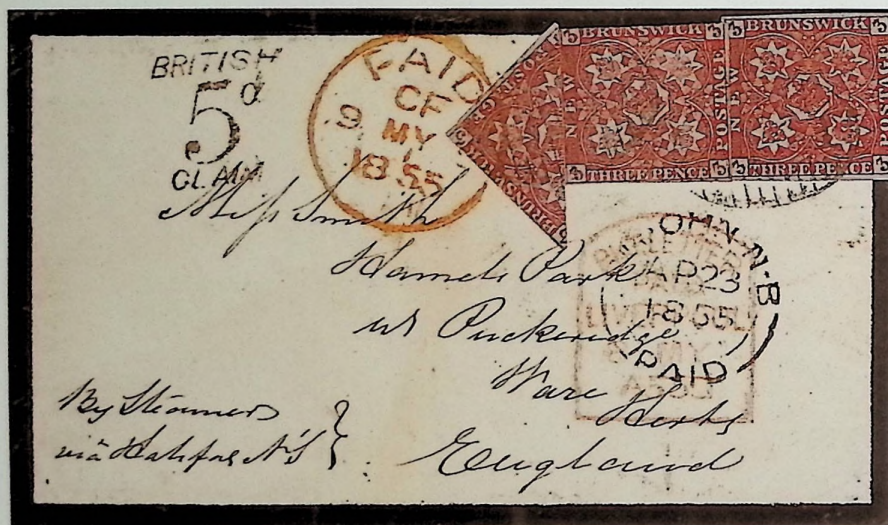 BRITISH
5d
CLAIM
PAID
CF
9 MY
1855
BRUNSWICK
NEW
POSTAGE
THREE PENCE
BRUNSWICK
NEW
THREE PENCE
OHN N-B
AP 23
1855
PAID
Miss Smith
Hamels Park
nr Puckeridge
Ware Herts
England
By Steamers
via Halifax N'S